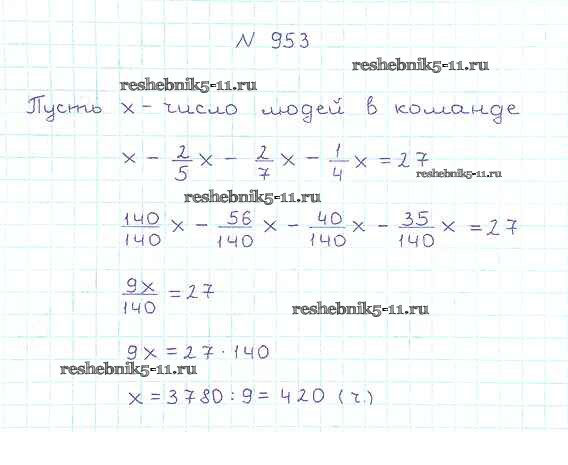 N 953
reshebnik5-11.ru
reshebnik5-11.ru
Пусть x - число людей в команде
x - 2/5 x - 2/7 x - 1/4 x = 27
reshebnik5-11.ru
reshebnik5-11.ru
140/140 x - 56/140 x - 40/140 x - 35/140 x = 27
9x/140 = 27
reshebnik5-11.ru
9x = 27 · 140
reshebnik5-11.ru
x = 3780 : 9 = 420 (ч.)